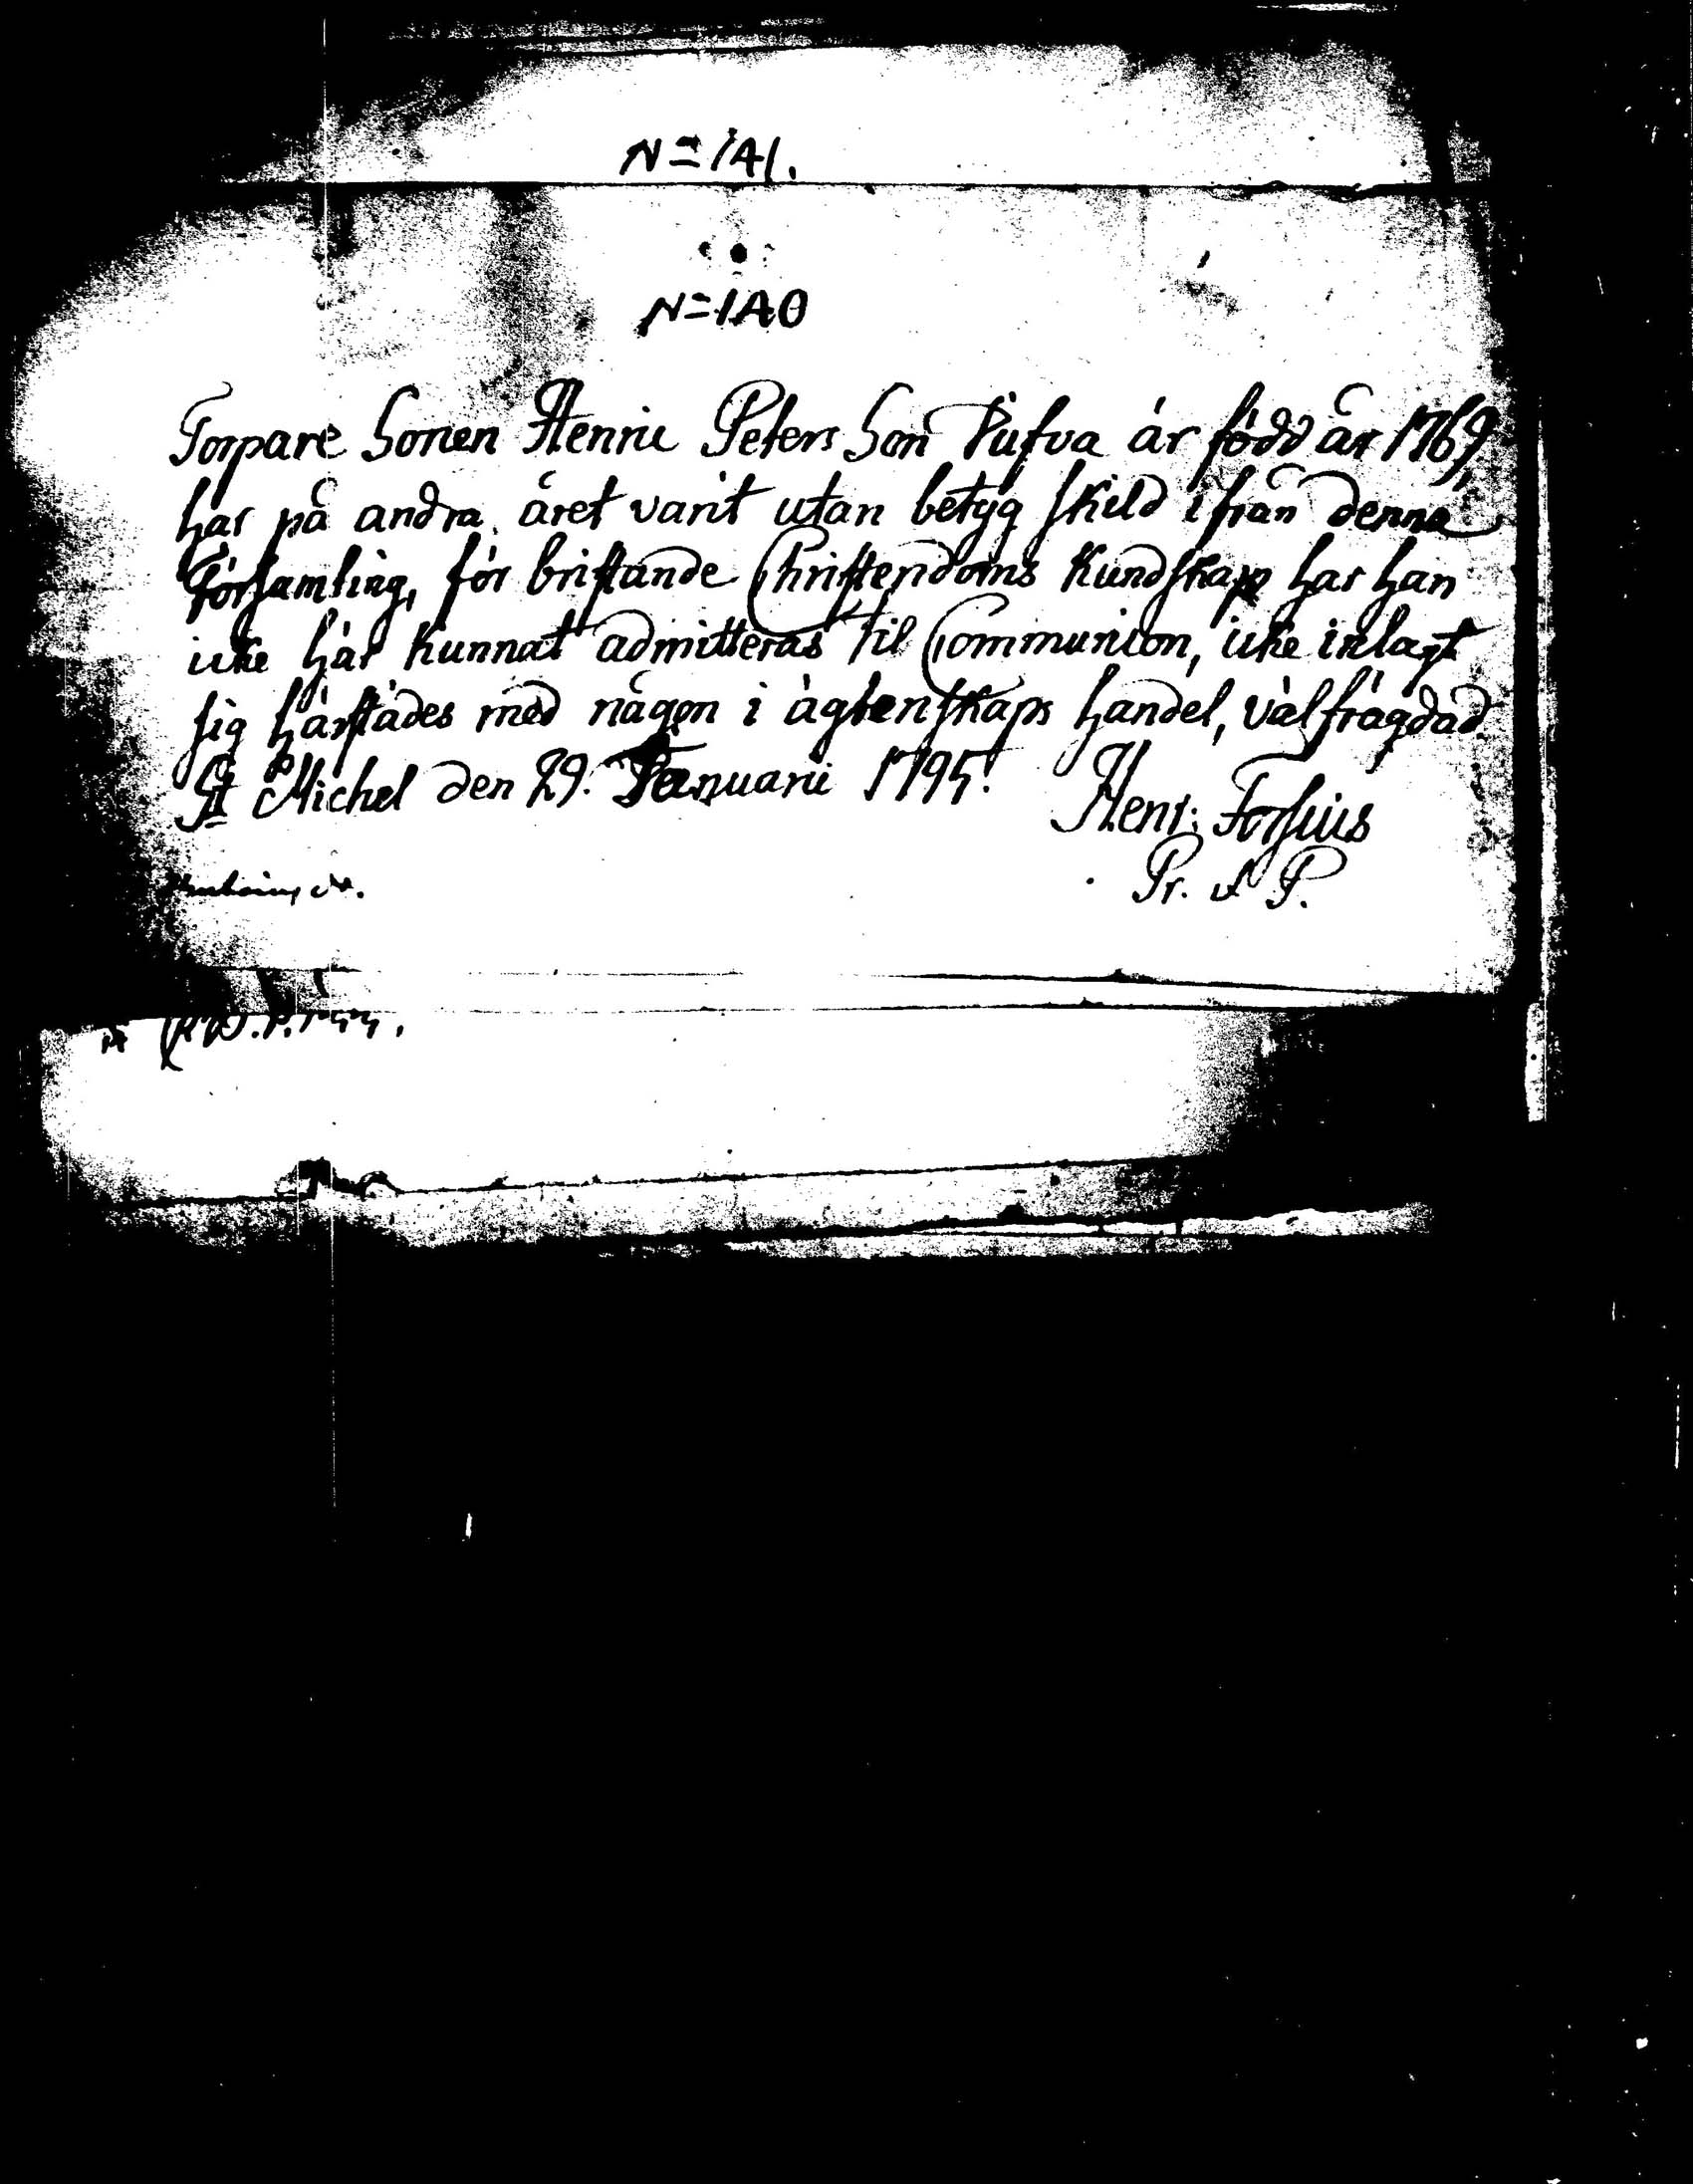 N=141.
N=140
Torpare Sonen Henric Peters Son Pufva är född år 1769,
har på andra året varit utan betyg skild ifrån denna
Församling, för bristande Christendoms Kundskap har han
icke här kunnat admitteras til Communion, icke inlagt
sig härstädes med någon i ägtenskaps handel, välfrägdad.
St Michel den 29. Januarii 1795.
Henr: Forsius
Pr. & P.